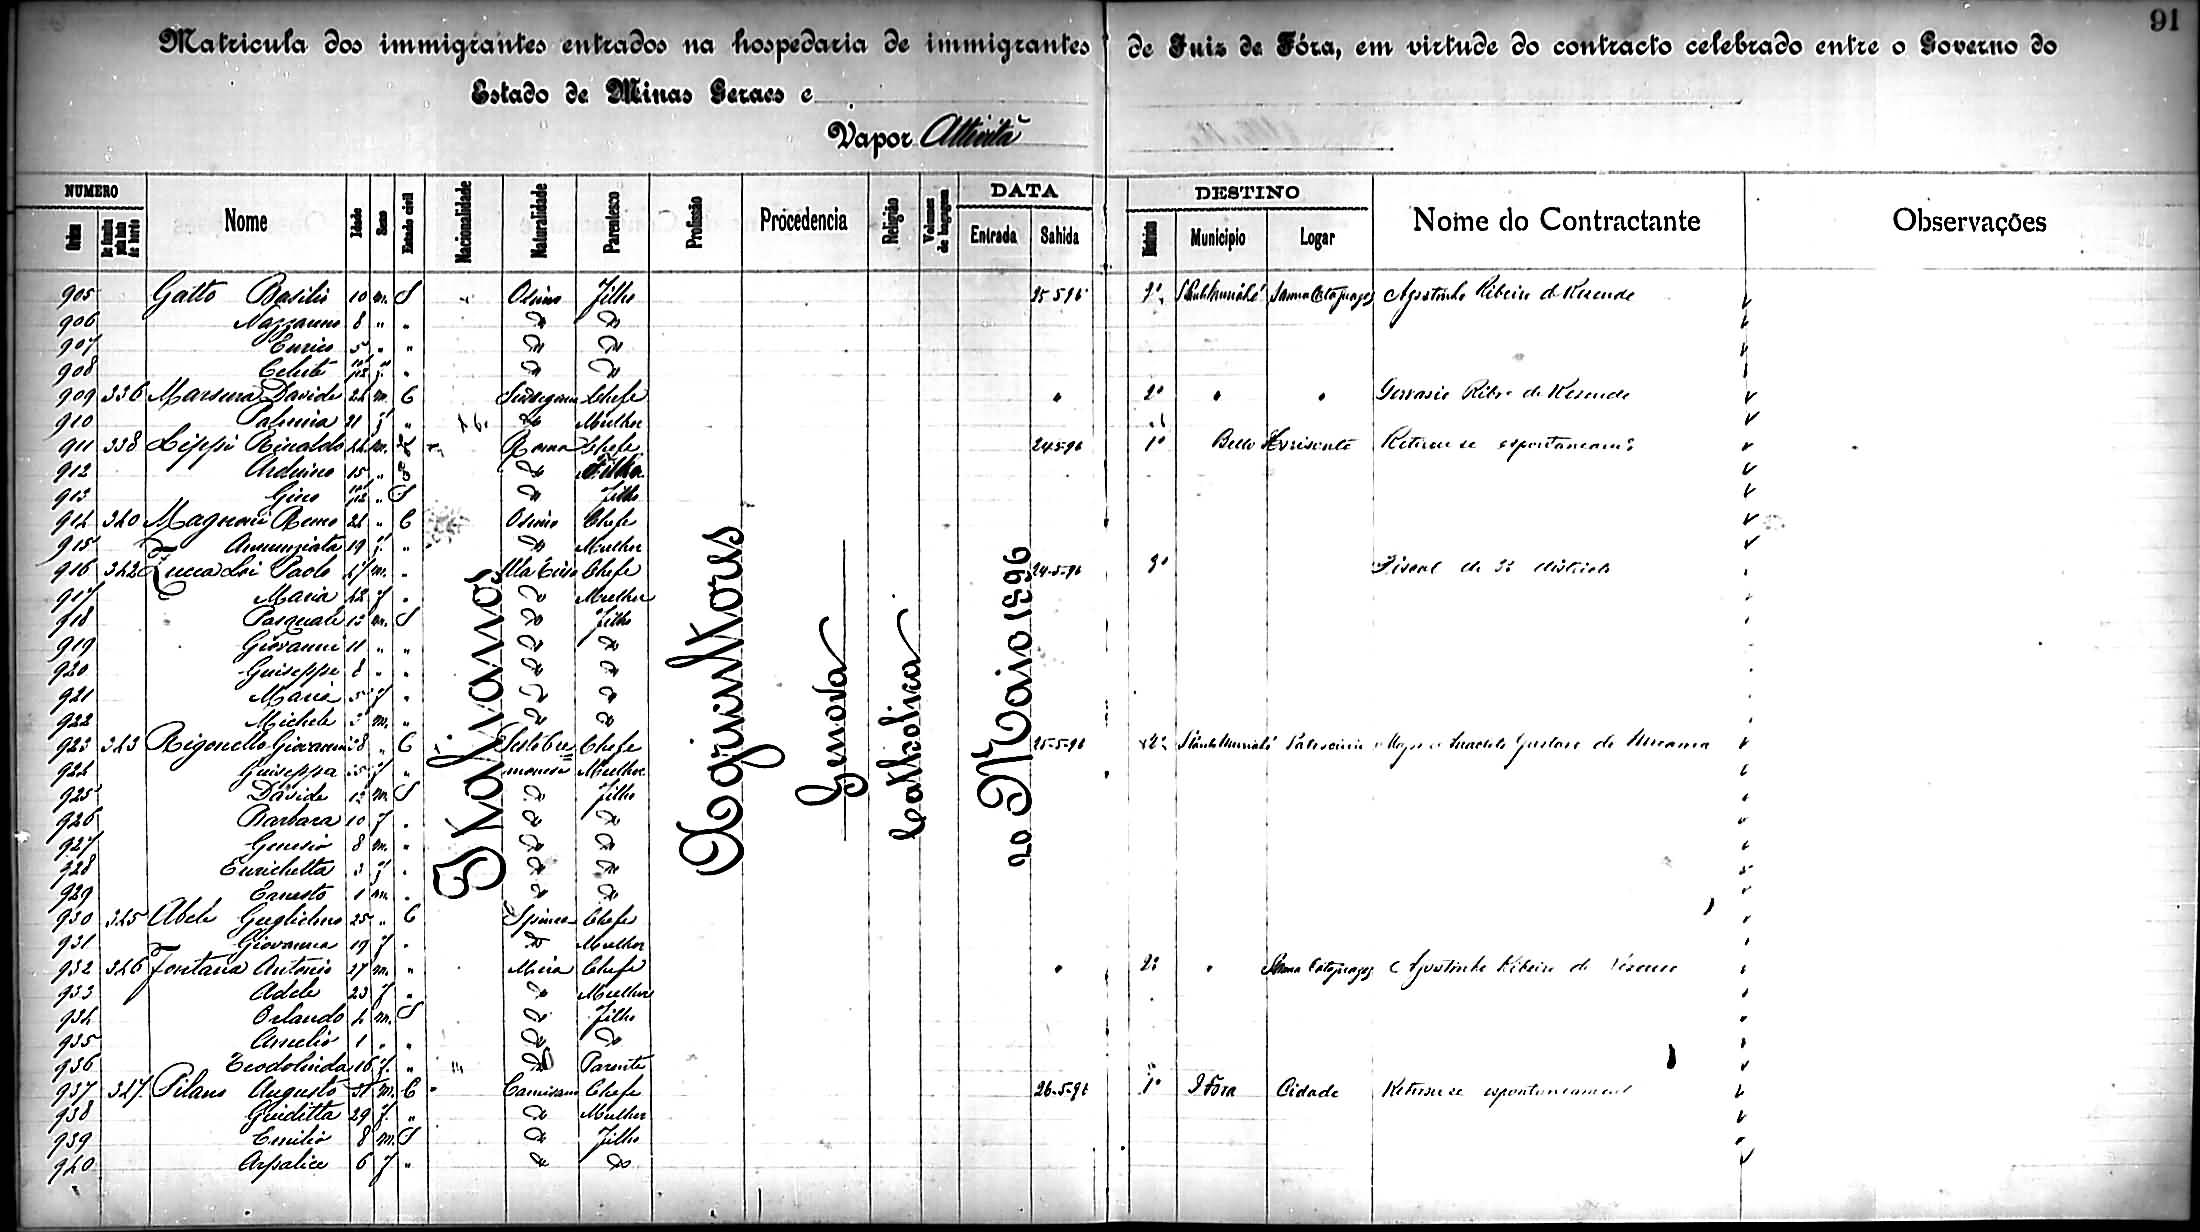 91
Matricula dos immigrantes entrados na hospedaria de immigrantes de Juiz de Fóra, em virtude do contracto celebrado entre o Governo do
Estado de Minas Geraes e
Vapor Attività
NUMERO Nome Idade Sexo Estado civil Nacionalidade Naturalidade Parentesco Profissão Procedencia Religião Volumes de bagagem DATA DESTINO Nome do Contractante Observações
Ordem De familia pela lista de bordo Entrada Sahida Districto Municipio Logar
Italianos
Agricultores
Genova
Catholica
20 Maio 1896
905 Gatto Basilio 10 m. S Osimo Filho 25-5-96 Agostinho Ribeiro de Rezende
906 Nazzareno 8 " " Do Do
907 Enrico 5 " " Do Do
908 Celeste f. " Do Do
909 336 Marsura Davide 24 m. C Chefe " 2º " " Gervasio Ribro de Rezende
910 Palmira 21 f " Do Mulher
911 338 Lippi Rinaldo 44 m. Roma Chefe 24-5-96 1º Bello Horisonte Retirou-se espontaneamte
912 Arduino 15 " S Do Filho
913 Gino " S Do Filho
914 340 Magnoni Remo 24 " C Osimo Chefe
915 Annunziata 19 f. " Do Mulher
916 342 Zucca Loi Paolo 47 m. " Villa Chefe 24-5-96 3º Fiscal do 3º districto
917 Maria 42 f " Do Mulher
918 Pasquale 13 m. S Do Filho
919 Giovanni 11 " " Do Do
920 Guiseppe 8 " " Do Do
921 Maria 5 f " Do Do
922 Michele 3 m. " Do Do
923 343 Rigonello Giovanni 38 " C Chefe 25-5-96 2º Patrocinio Gustavo de
924 Guiseppa 35 f " Mulher
925 Davide 12 m. S Do Filho
926 Barbara 10 f. " Do Do
927 Genesio 8 m. " Do Do
928 Enrichetta 3 f " Do Do
929 Ernesto 1 m. " Do Do
930 345 Abele Guglielmo 25 " C Spinea Chefe
931 Giovanna 19 f. " Do Mulher
932 346 Fontana Antonio 27 m. " Mira Chefe " 2º " Agostinho Ribeiro de
933 Adele 23 f " Do Mulher
934 Orlando 4 m. S Do Filho
935 Amelio 1 " " Do Do
936 Teodolinda 16 f. " Do Parente
937 347 Pilans Augusto 31 m. C Camisano Chefe 26-5-96 1º J Fora Cidade Retirou-se espontaneament
938 Guiditta 29 f. " Do Mulher
939 Emilio 8 m. S Do Filho
940 Arpalice 6 f " Do Do